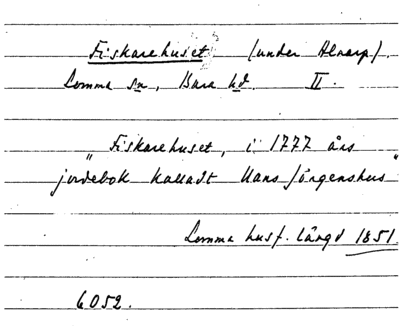 Fiskarehuset (under Alnarp).
Lomma sn, Bara hd. II.
"Fiskarehuset, i 1777 års
jordebok kalladt Hans Jörgenshus"
Lomma husf. längd 1851
6052.